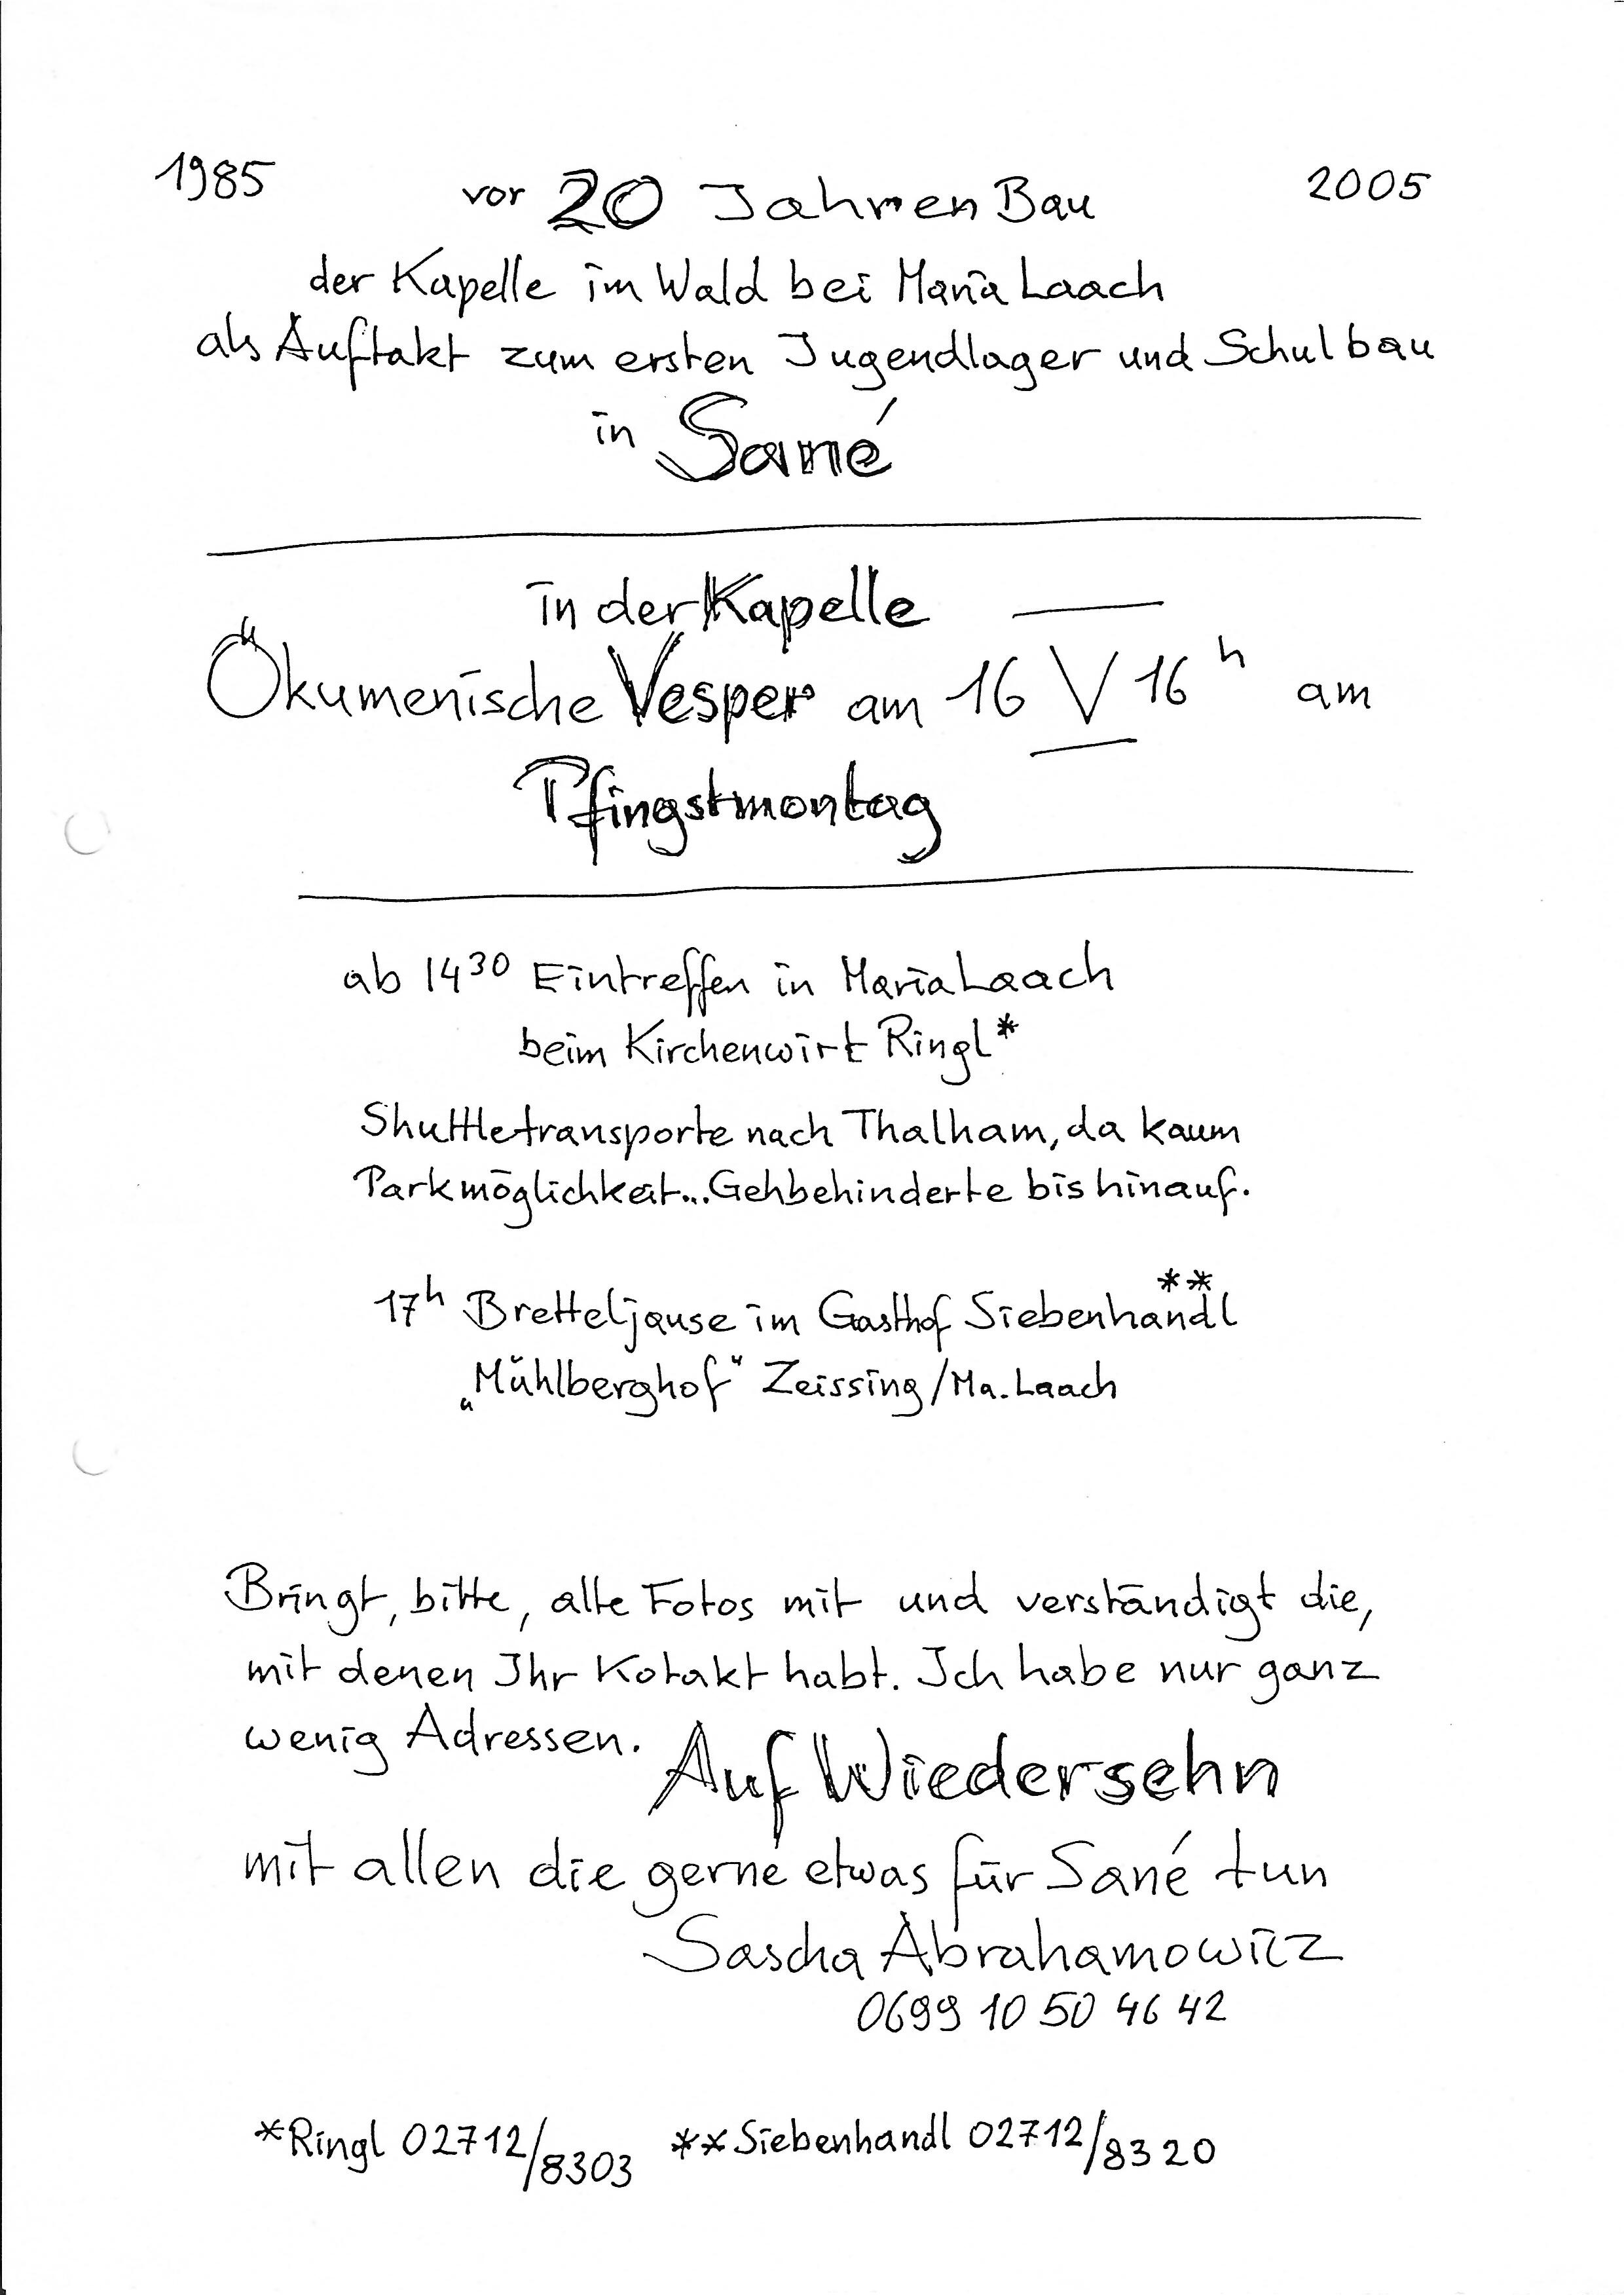 1985 vor 20 Jahren Bau 2005
der Kapelle im Wald bei Maria Laach
als Auftakt zum ersten Jugendlager und Schulbau
in Sané
in der Kapelle
Ökumenische Vesper am 16 V 16 h am
Pfingstmontag
ab 14 30 Eintreffen in Maria Laach
beim Kirchenwirt Ringl*
Shuttletransporte nach Thalham, da kaum
Parkmöglichkeit... Gehbehinderte bis hinauf.
17 h Bretteljause im Gasthof Siebenhandl**
„Mühlberghof“ Zeissing/Ma. Laach
Bringt, bitte, alte Fotos mit und verständigt die,
mit denen Ihr Kotakt habt. Ich habe nur ganz
wenig Adressen. Auf Wiedersehn
mit allen die gerne etwas für Sané tun
Sascha Abrahamowicz
0699 10 50 46 42
*Ringl 02712/8303 **Siebenhandl 02712/8320